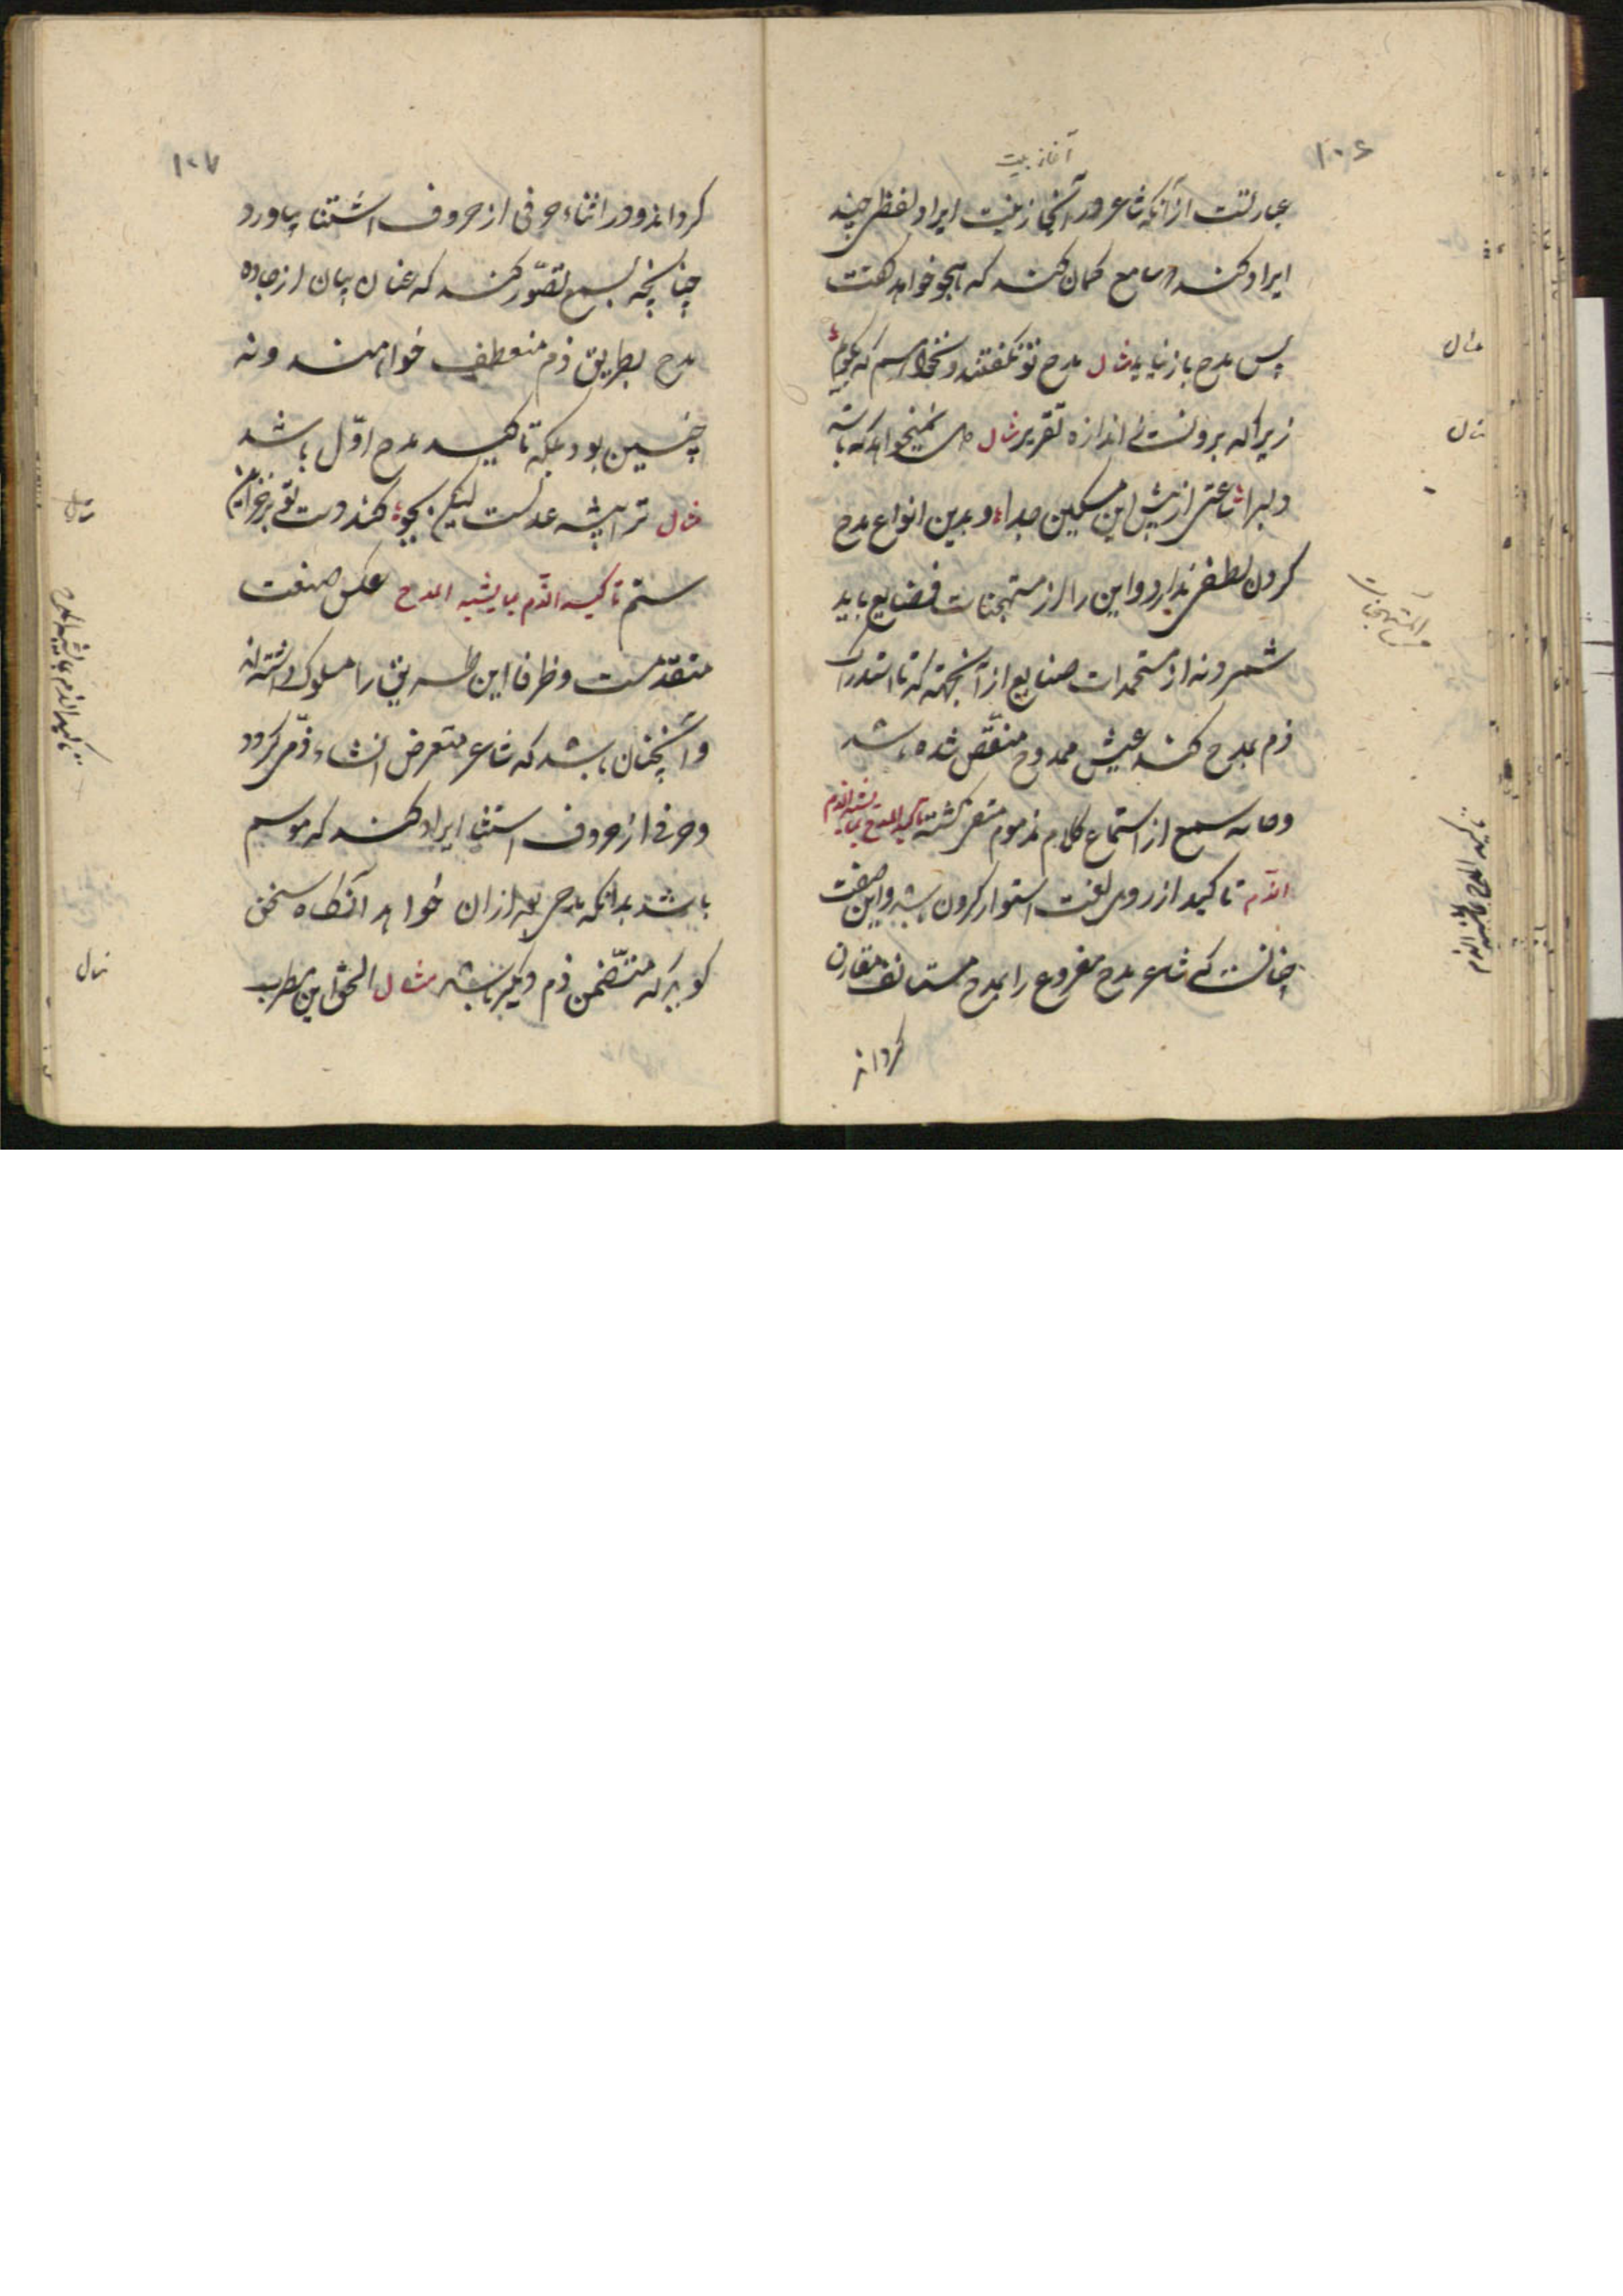 ۱۰۶
آغاز بیت
عبارتست از آنکه شاعر در آنجا ز بیت ایراد لفظی چند
ایراد کند و سامع گمان کند که هجو خواهد گفت
پس مدح باز نماید مثال مدح تو نگفتند و نخواهم که بگویم
زیرا که برونست ز اندازه تقریر مثال نمیخواهد که باشد
دلبرا ساعتی از پیش این مسکین جدا و بدین انواع مدح
کردن لطفی ندارد و این را از مستهجنات فضایع باید
شمرد نه از مستحمدات صنایع از آنجهة که تا استدراک
ذم بمدح کند عیش ممدوح منغّص شده باشد
و حاسه سمع از استماع کلام مذموم متنفر گشته تاکید المدح بما یشبه الذم
الذم تاکید از روی لغت استوار کردن باشد و این صنعت
چنانست که شاعر مدح مفروع را بمدح مستانف مقارن
گرداند
مثال
مثال
المستهجنات
تاکید المدح بما یشبه الذم
۱۰۷
گرداند و در اثناء حرفی از حروف استثنا بیاورد
چنانچه سمع تصوّر کند که عنان بیان از جاده
مدح بطریق ذم منعطف خواهند و نه
چنین بود بلکه تاکید مدح اوّل باشد
مثال ترا پیشه عدلست لیکن بجود کند دست تو بر خزاین
ستم تاکید الذّم بما یشبه المدح عکس صنعت
متقدمست و ظرفا این طریق را مسلوک داشته اند
و آنچنان باشد که شاعر متعرض انشاء ذمّی گردد
و حرفی از حروف استثنا ایراد کند که موسم
باشد بدانکه مدحی بعد از ان خواهد آنگاه سخن
گوید که متضّمن ذم دیگر باشد مثال الحق این مطرب
مثال
تاکید الذم بما یشبه المدح
مثال